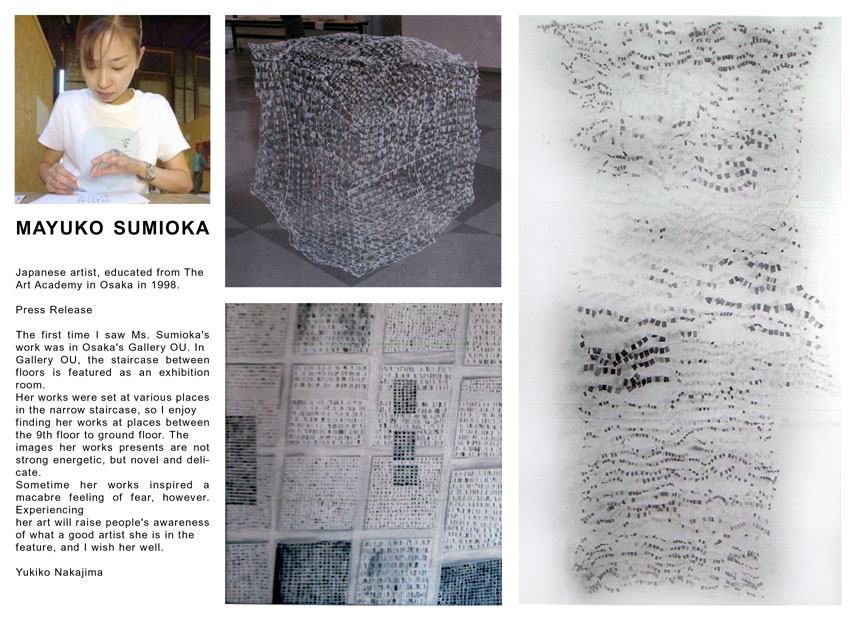 MAYUKO SUMIOKA
Japanese artist, educated from The
Art Academy in Osaka in 1998.
Press Release
The first time I saw Ms. Sumioka's
work was in Osaka's Gallery OU. In
Gallery OU, the staircase between
floors is featured as an exhibition
room.
Her works were set at various places
in the narrow staircase, so I enjoy
finding her works at places between
the 9th floor to ground floor. The
images her works presents are not
strong energetic, but novel and deli-
cate.
Sometime her works inspired a
macabre feeling of fear, however.
Experiencing
her art will raise people's awareness
of what a good artist she is in the
feature, and I wish her well.
Yukiko Nakajima